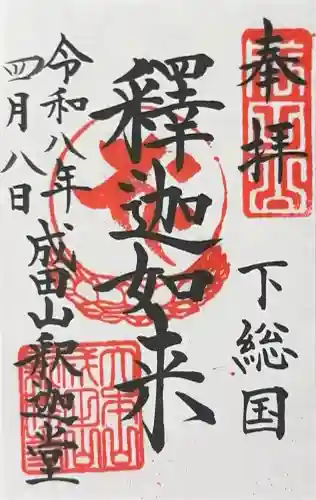 奉拝
下総国
釋迦如来
成田山釈迦堂
令和八年
四月八日